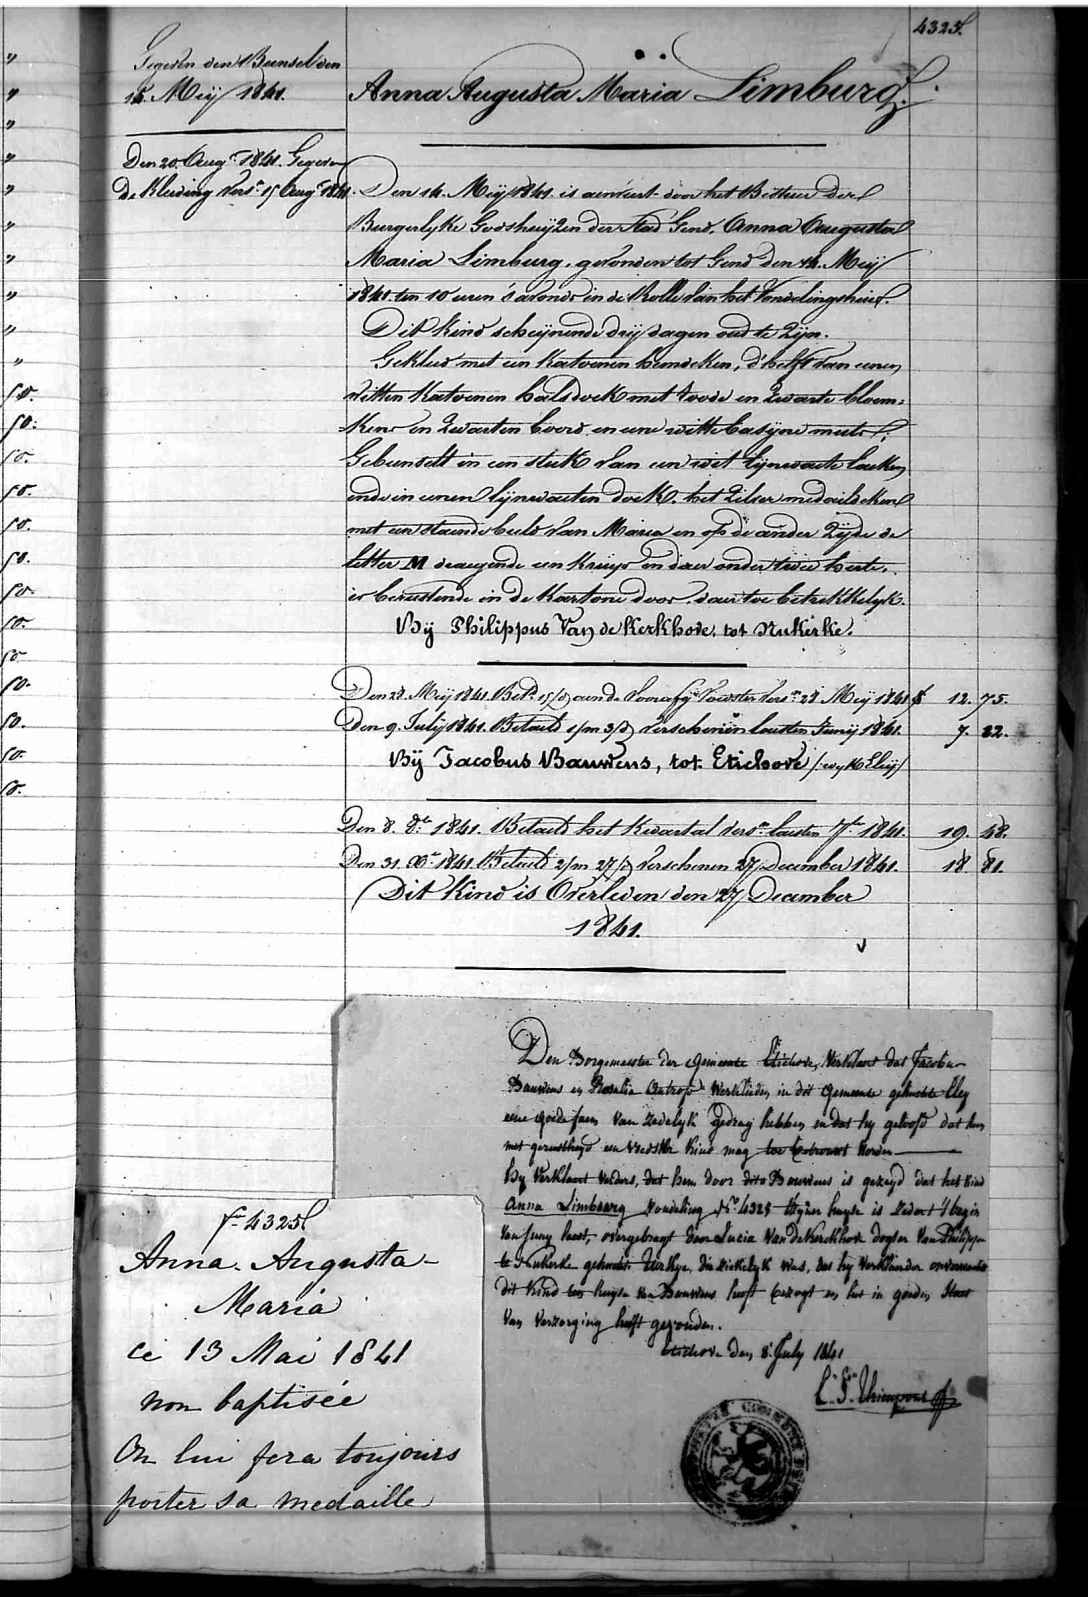 4325.
Gegeven den Bunsel den
14. Meÿ 1841.
Anna Augusta Maria Limburg.
Den 20. Augt. 1841. Gegeven
De Kleeding Versn. 15 Augt. 1841.
Den 14. Meÿ 1841. is aenveirt door het Bestuer der
Burgerlyke Godshuÿzen der stad Gend, Anna Augusta
Maria Limburg, gevonden tot Gend den 14. Meÿ
1841 ten 10 uren s'avonds in de Rolle van het Vondelingshuis.
Dit Kind scheÿnende drÿ dagen oud te Zÿn.
Gekleed met een Katoenen hemdeken, d'helft van eenen
witten Katoenen halsdoek met roode en Zwarte bloem=
kens en Zwarten boord en eene witte basÿne muts.
Gebunselt in een stuk van een wit lÿnwaete laeken
ende in eenen lÿnwaeten doek. het Zilver medaileken
met een staende beeld van Maria en op de ander Zÿde de
letter M draegende een Kruÿs en daer onder twee herte.
is berustende in de Kartone doos. daer toe betrekkelÿk.
Bÿ Philippus Van de Kerkhove, tot Nukerke.
Den 28. Meÿ 1841. Bet. 15/ aen de Voorafge Voedster Versn. 28 Meÿ 1841 f 12. 75.
Den 9. Julÿ 1841. Betaeld 1/m 3/d verschenen lausten Junÿ 1841. 7. 22.
Bÿ Jacobus Bauwens, tot Etichove /: wyk Eleÿ/
Den 8. 8bre 1841. Betaeld het Kwartal versn. lausten 7bre 1841. 19. 48.
Den 31. Xbre 1841. Betaeld 2/m 27/d Verschenen 27 December 1841. 18. 81.
Dit Kind is Overleden den 27 December
1841.
Den Borgemeester der Gemeente Etichove, Verklaert dat Jacobus
Bauwens en Rosalia Ostrop Werklieden in dit Gemeente gehuchte Eley
eene goede faem van Zedelyk gedrag hebben en dat hy gelooft dat hun
met gerustheyd een voedster Kind mag toe betrouwt Worden
hy verklaert verders, dat hem door dito Bauwens is gezeyd dat het kind
Anna Limbourg Vondeling No. 4325 t'zÿner huyse is zedert 't begin
van Juny laest, overgebragt door Lucia Van de Kerckhove dogter van Philippe
te Nukerke gehucht, die Ziekelyk was, dat hy Verklaerder
dit kind ten huyse van Bauwens heeft bezogt en het in goeden Staet
van Verzorging heeft gevonden.
Etichove den 8 July 1841
fo. 4325
Anna. Augusta-
Maria
ce 13 Mai 1841
non baptisée
On lui fera toujours
porter sa medaille